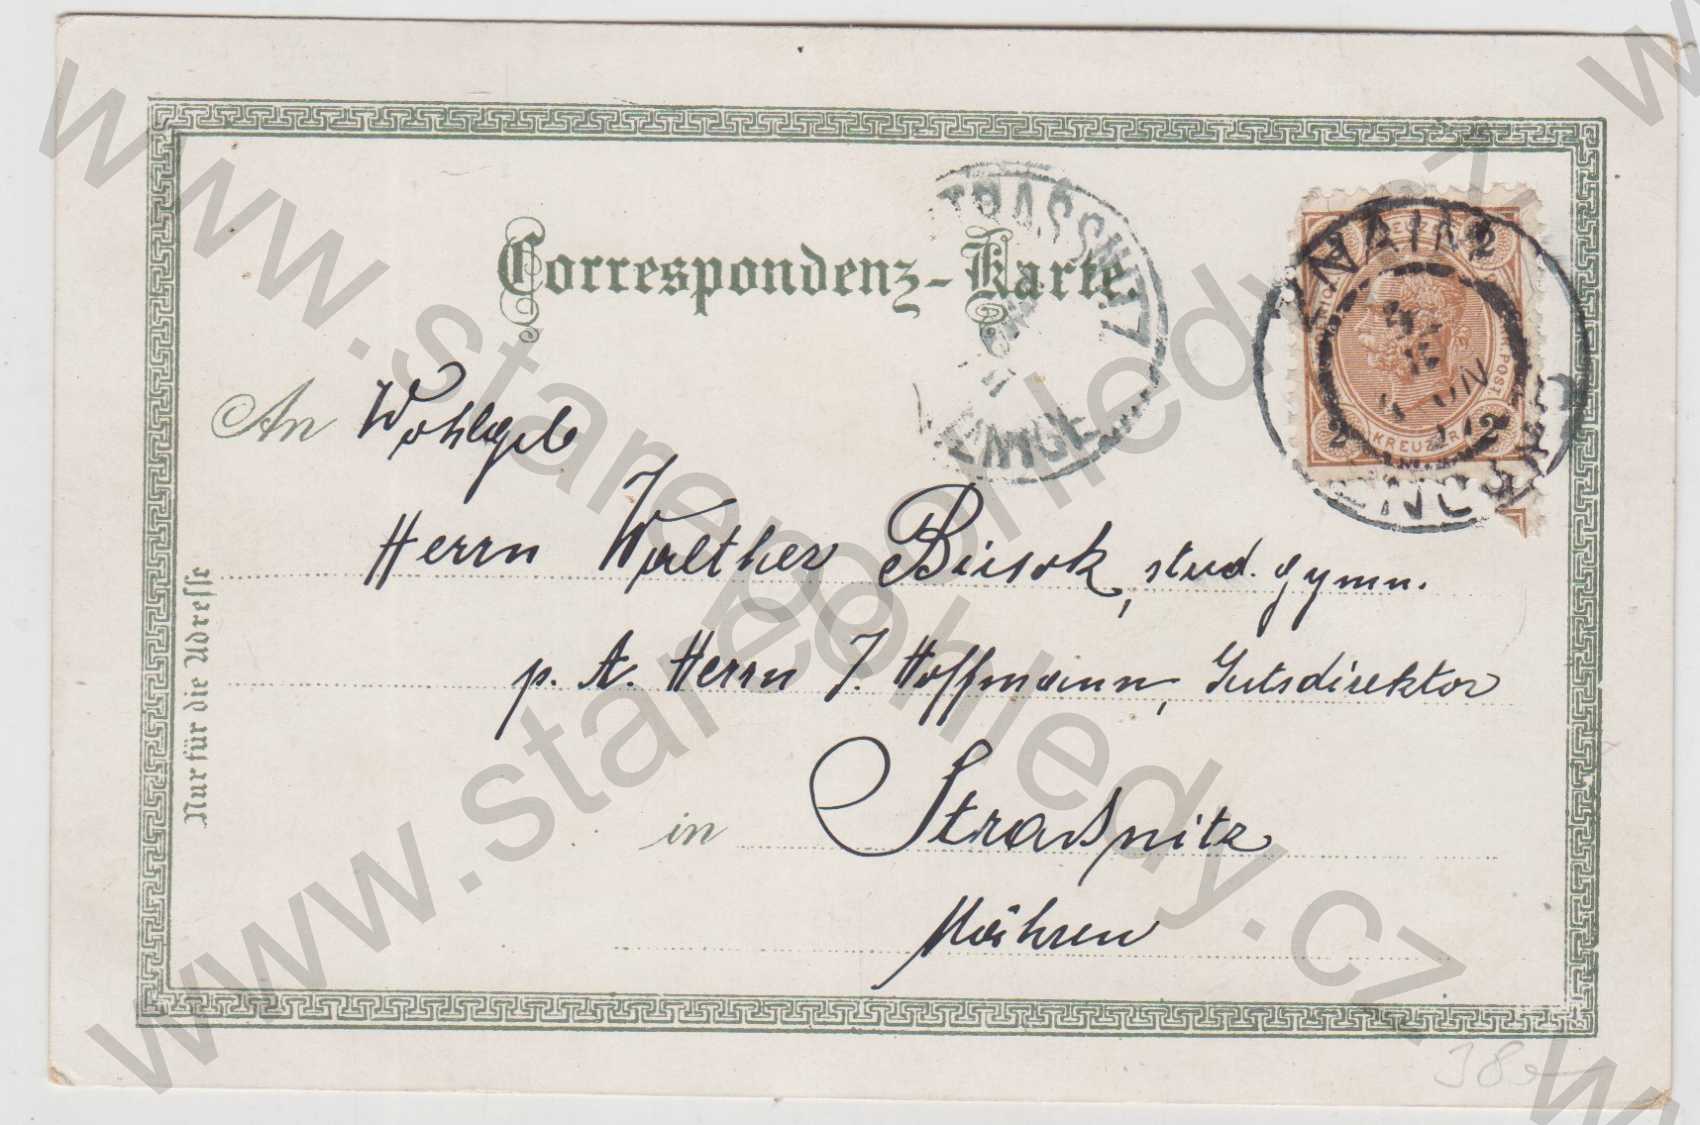 Correspondenz-Karte.
STRASSNITZ
ZNAIM
2 KREUZER 2
An Wohlgeb
Herrn Walther Biesok, stud. gymn.
p. A. Herrn J. Hoffmann, Gutsdirektor
in Straßnitz
Mähren
Nur für die Adresse
38
www.starepohledy.cz
www.starepohledy.cz